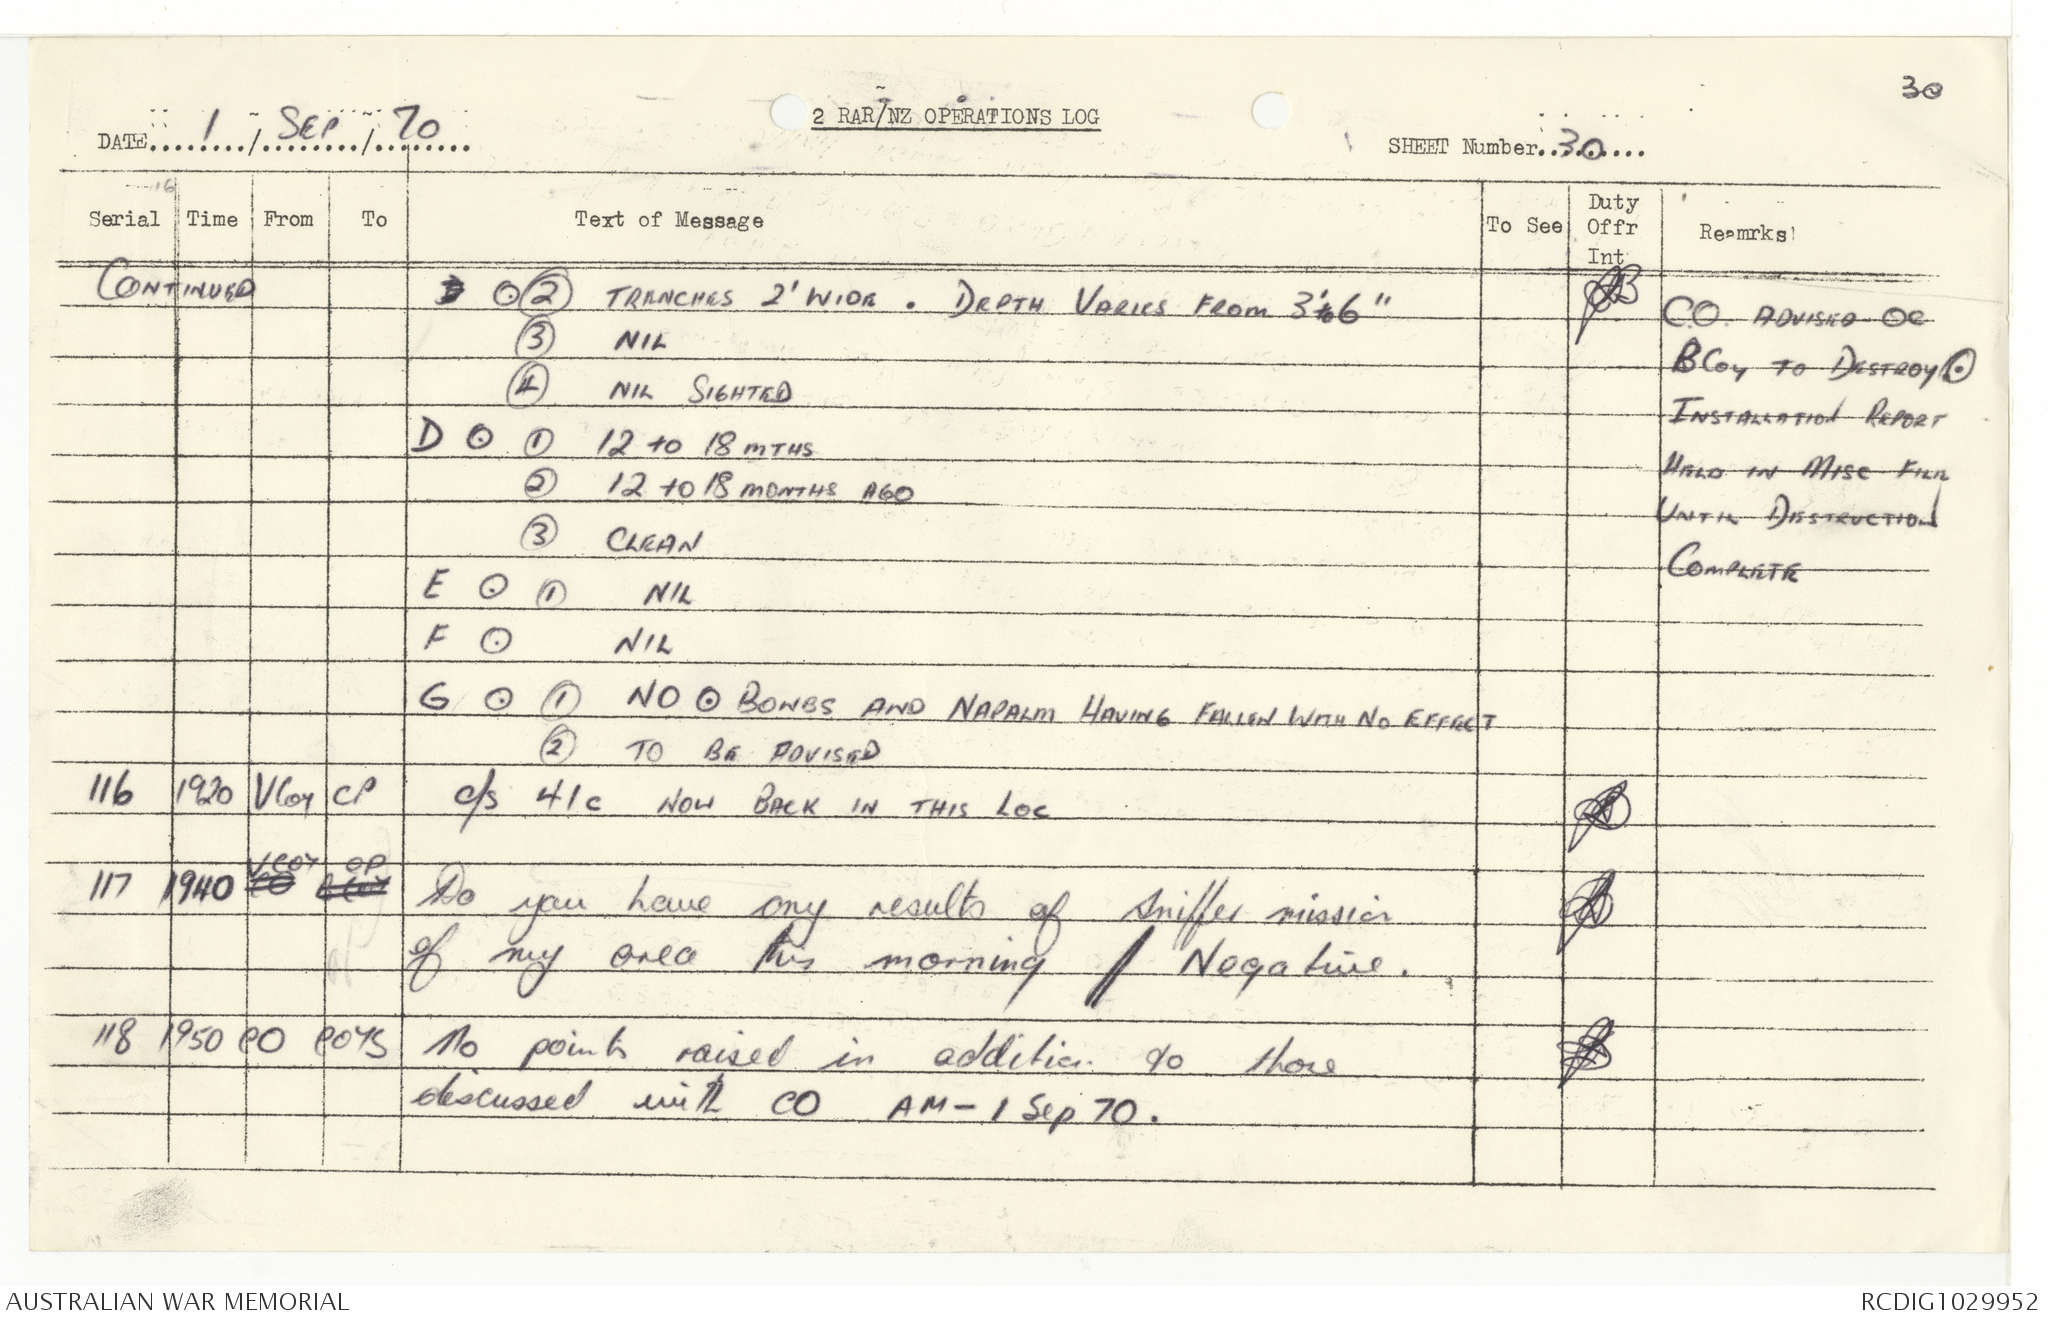 30
2 RAR/NZ OPERATIONS LOG
DATE 1 / SEP / 70
SHEET Number 30
Serial Time From To Text of Message To See Duty Offr Int Reamrks
CONTINUED ⊙ ② TRENCHES 2' WIDE . DEPTH VARIES FROM 3' to 6"
③ NIL
④ NIL SIGHTED
D ⊙ ① 12 to 18 MTHS
② 12 to 18 MONTHS AGO
③ CLEAN
E ⊙ ① NIL
F ⊙ NIL
G ⊙ ① NO ⊙ BOMBS AND NAPALM HAVING FALLEN WITH NO EFFECT
② TO BE ADVISED
C.O. ADVISED OC
B Coy TO DESTROY ⊙
INSTALLATION REPORT
HELD IN MISC FILE
UNTIL DESTRUCTION
COMPLETE
116 1920 V Coy CP c/s 41C NOW BACK IN THIS LOC
117 1940 V COY CP Do you have any results of sniffer mission
of my area this morning / Negative.
118 1950 CO COYS No points raised in addition to those
discussed with CO AM - 1 Sep 70.
AUSTRALIAN WAR MEMORIAL
RCDIG1029952